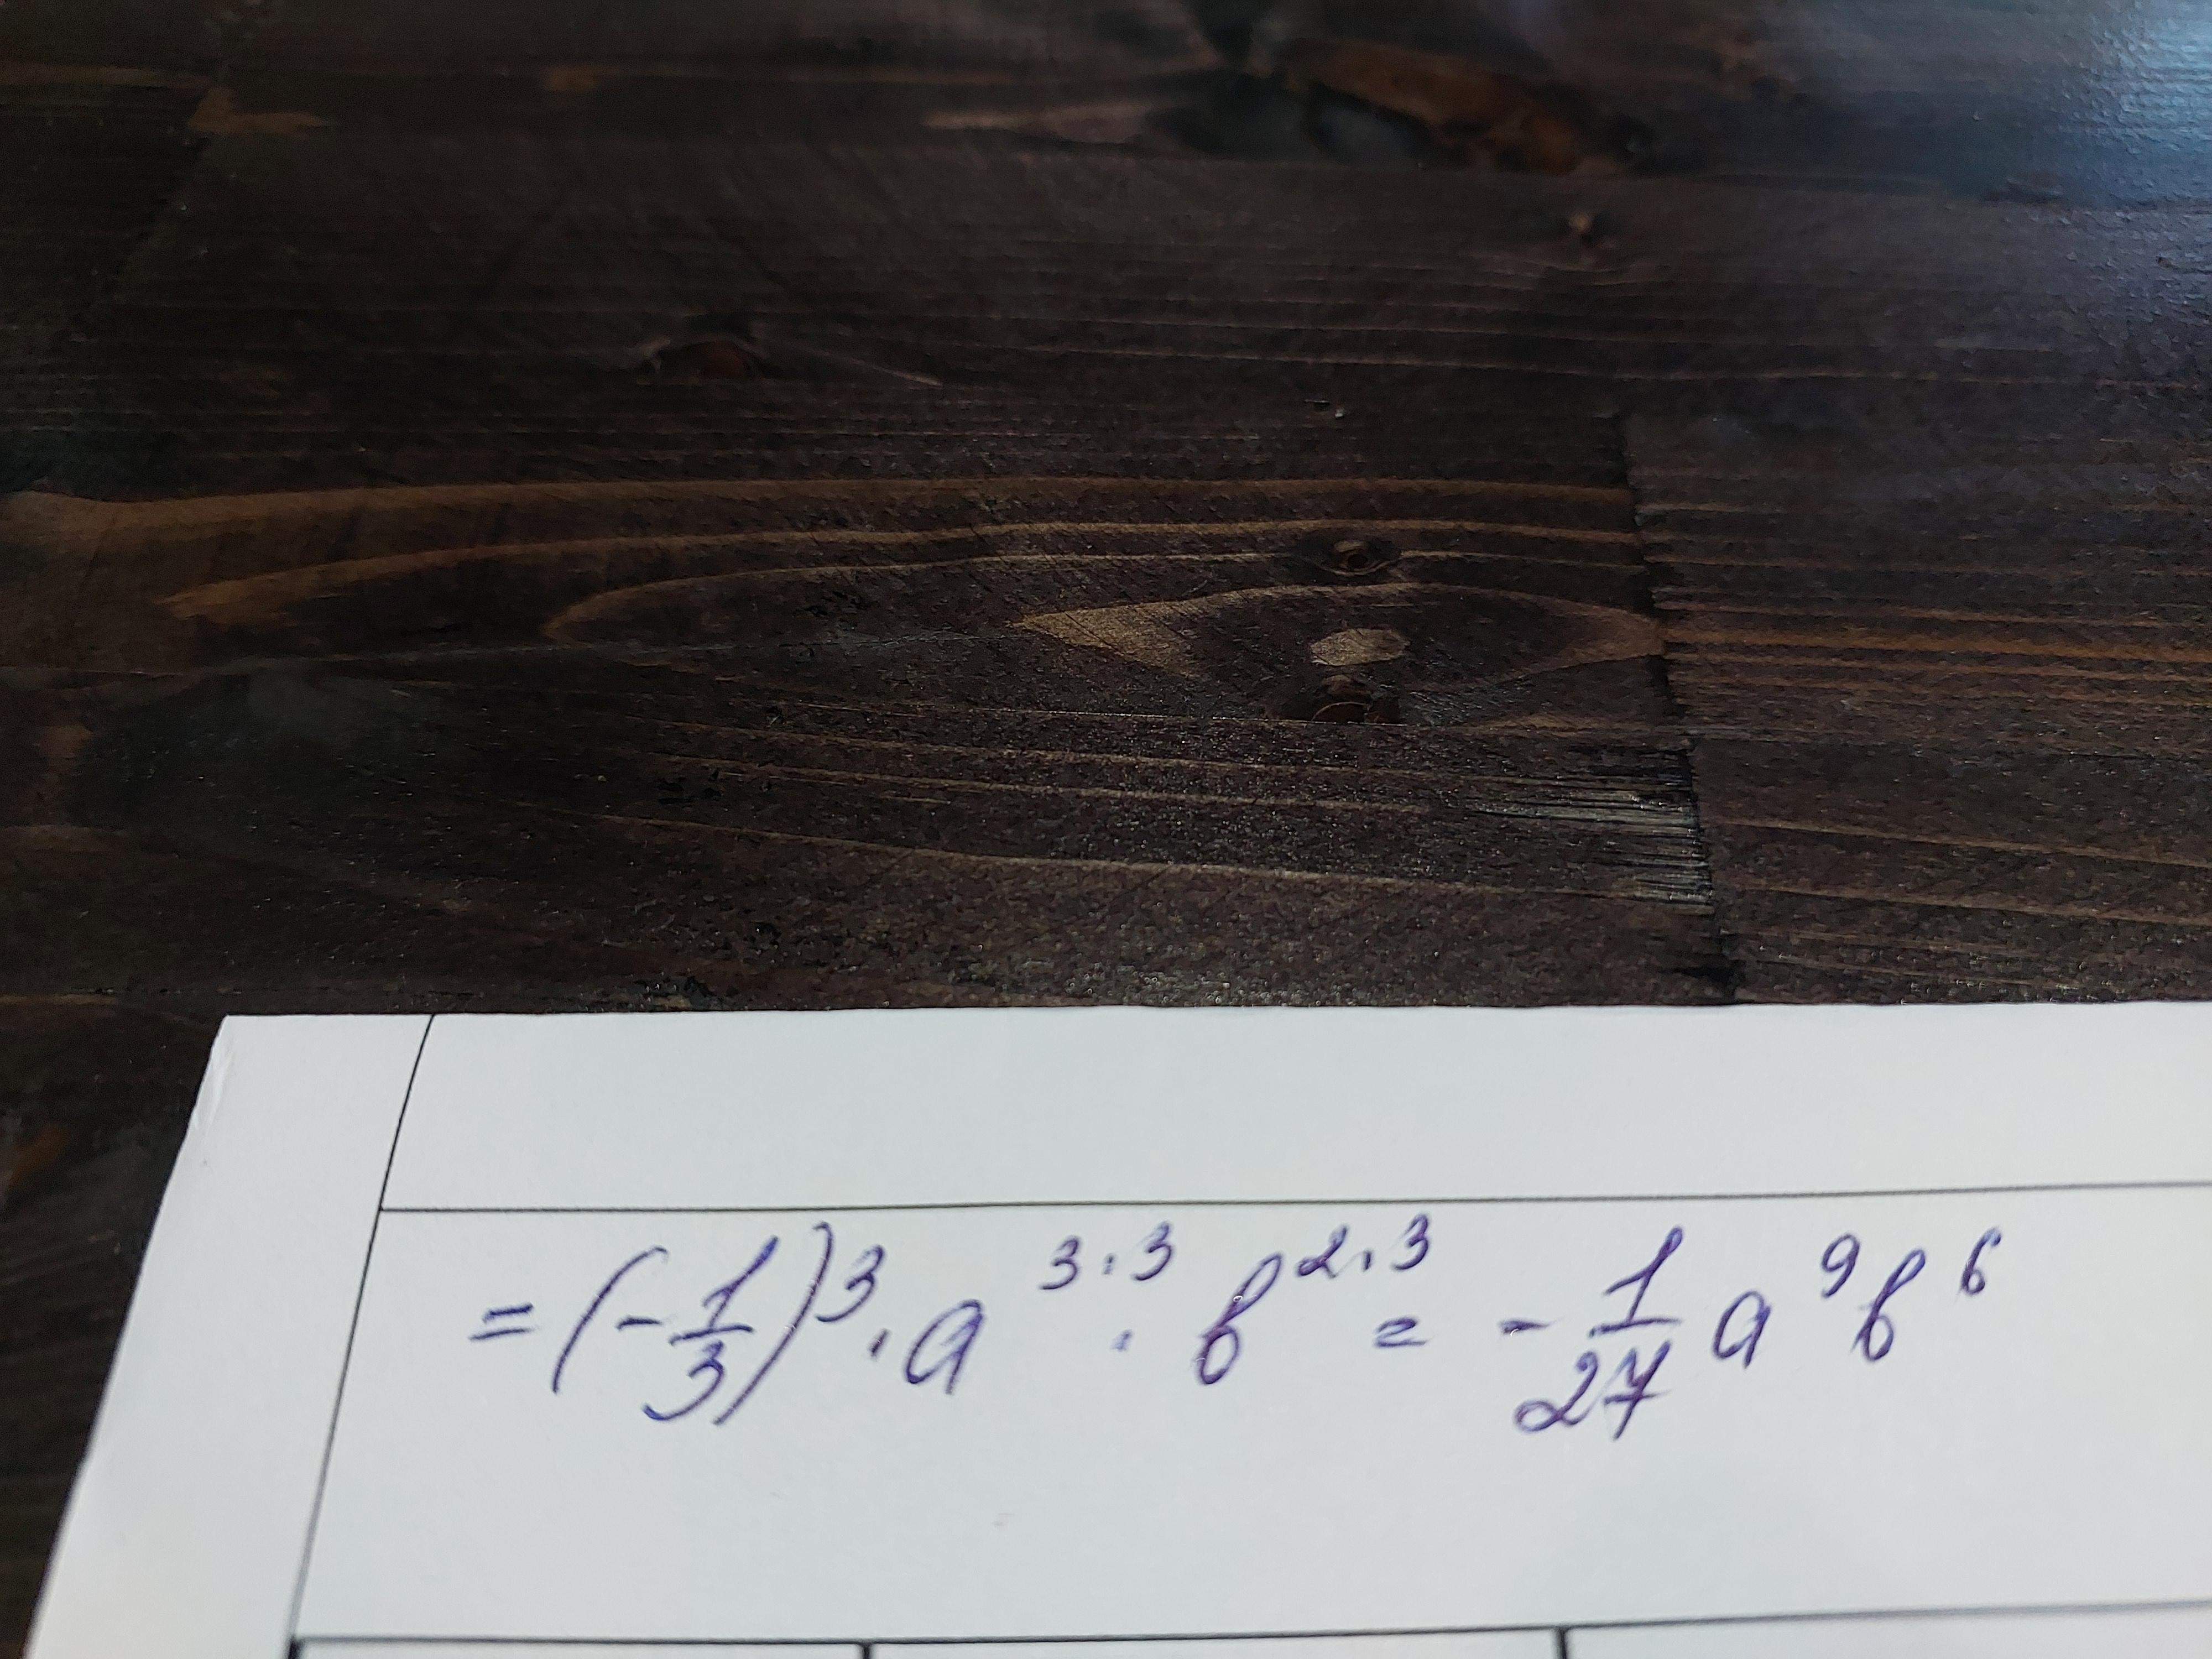 = (-1/3)³ · a³·³ · b²·³ = -1/27 a⁹b⁶